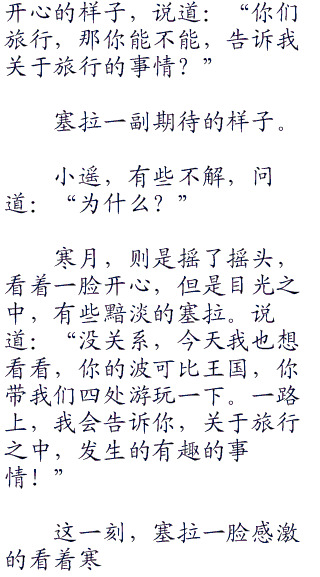 开心的样子，说道：“你们
旅行，那你能不能，告诉我
关于旅行的事情？”
塞拉一副期待的样子。
小遥，有些不解，问
道：“为什么？”
寒月，则是摇了摇头，
看着一脸开心，但是目光之
中，有些黯淡的塞拉。说
道：“没关系，今天我也想
看看，你的波可比王国，你
带我们四处游玩一下。一路
上，我会告诉你，关于旅行
之中，发生的有趣的事
情！”
这一刻，塞拉一脸感激
的看着寒